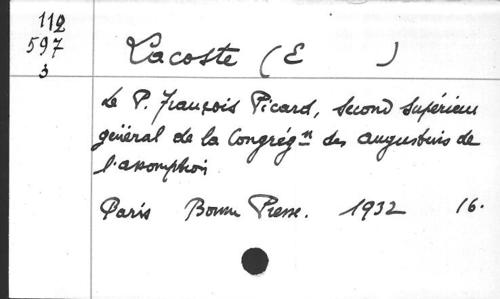 112
597
3
Lacoste (E )
Le P. François Picard, second supérieur
général de la Congrég.n des augustins de
l'assomption
Paris Bonne Presse. 1932 16.